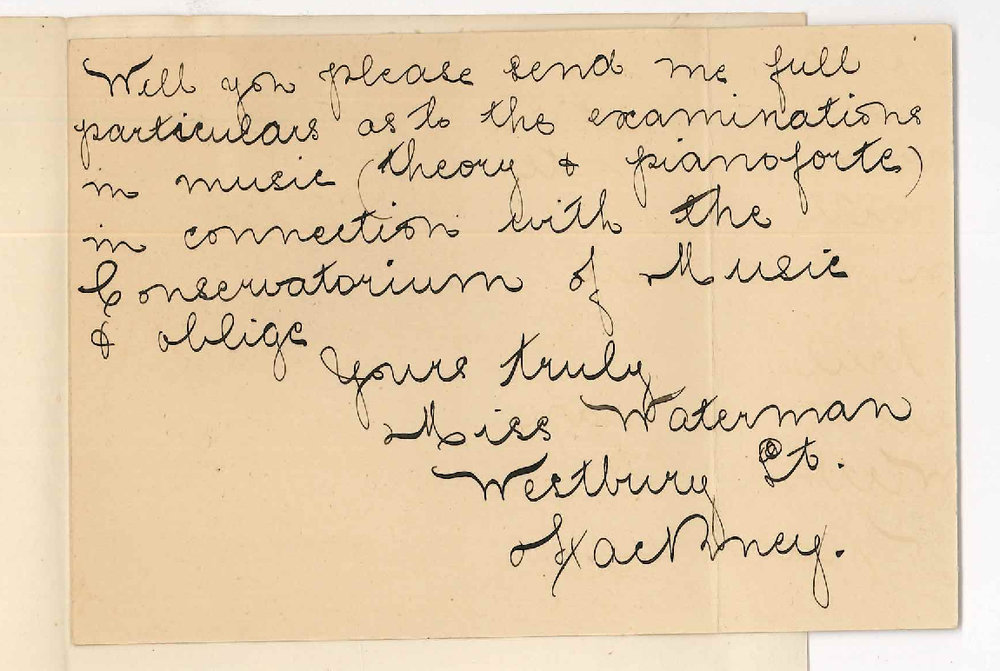 Will you please send me full
particulars as to the examinations
in music (theory & pianoforte)
in connection with the
Conservatorium of Music
& oblige
Yours truly
Miss Waterman
Westbury St.
Hackney.